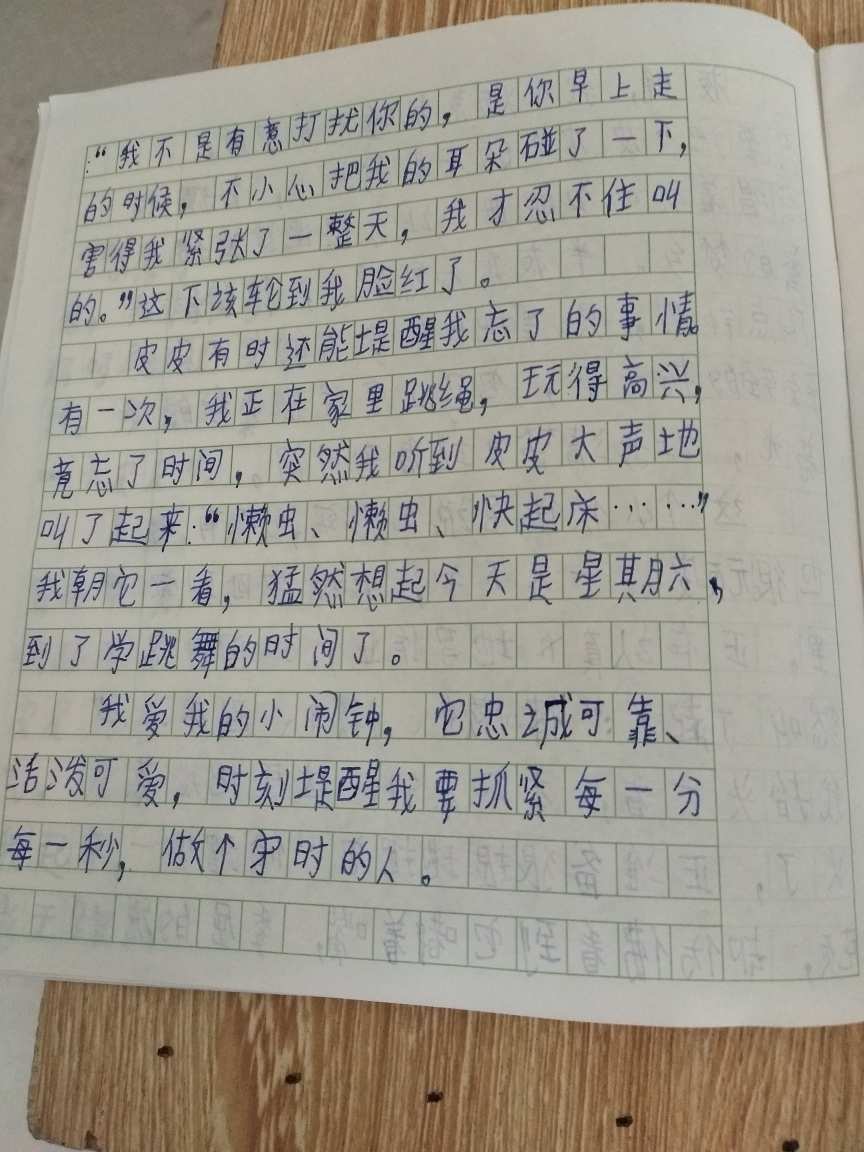 ：“我不是有意打扰你的，是你早上走
的时候，不小心把我的耳朵碰了一下，
害得我紧张了一整天，我才忍不住叫
的。”这下该轮到我脸红了。
皮皮有时还能堤醒我忘了的事情。
有一次，我正在家里跳绳，玩得高兴，
竟忘了时间，突然我听到皮皮大声地
叫了起来：“懒虫、懒虫、快起床……”
我朝它一看，猛然想起今天是星其月六，
到了学跳舞的时间了。
我爱我的小闹钟，它忠诚可靠、
活泼可爱，时刻堤醒我要抓紧每一分
每一秒，做个守时的人。